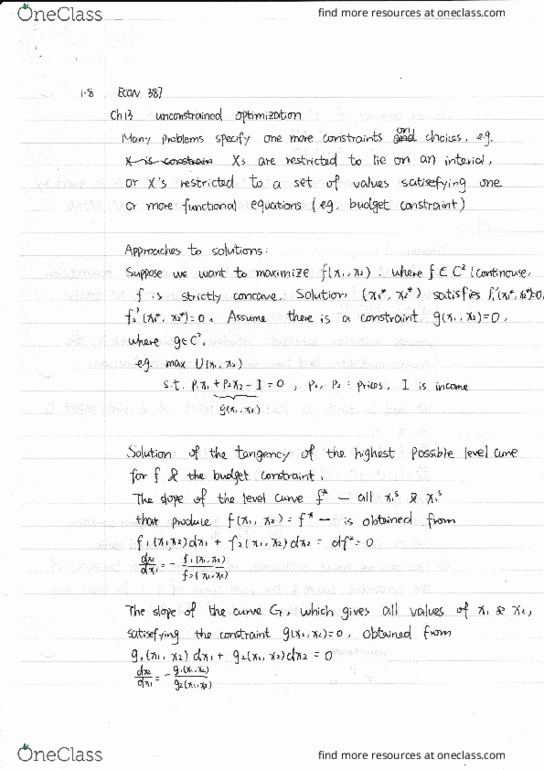 OneClass
find more resources at oneclass.com
1-8 ECON 387
Ch13 unconstrained optimization
Many problems specify one more constraints on choices, eg.
X is constrain Xs are restricted to lie on an interial,
or X's restricted to a set of values satisefying one
or more functional equations (eg. budget constraint)
Approaches to solutions:
Suppose we want to maximize f(x₁, x₂). where f ∈ C² (continouse,
f is strictly concave. Solution (x₁*, x₂*) satisfies f₁'(x₁*, x₂*)=0,
f₂'(x₁*, x₂*)=0. Assume there is a constraint g(x₁, x₂)=0,
where g∈C².
eg. max U(x₁, x₂)
s.t. P₁x₁ + P₂x₂ - I = 0, P₁, P₂ : prices, I is income
g(x₁, x₂)
Solution of the tangency of the highest possible level curve
for f & the budget constraint.
The slope of the level curve f* — all x₁s & x₂s
that produce f(x₁, x₂) = f* — is obtained from
f₁(x₁,x₂)dx₁ + f₂(x₁, x₂)dx₂ = df* = 0
dx₂/dx₁ = - f₁(x₁,x₂)/f₂(x₁,x₂)
The slope of the curve G, which gives all values of x₁ & x₂,
satisefying the constraint g(x₁, x₂)=0, obtained from
g₁(x₁, x₂) dx₁ + g₂(x₁, x₂)dx₂ = 0
dx₂/dx₁ = - g₁(x₁,x₂)/g₂(x₁,x₂)
OneClass
find more resources at oneclass.com